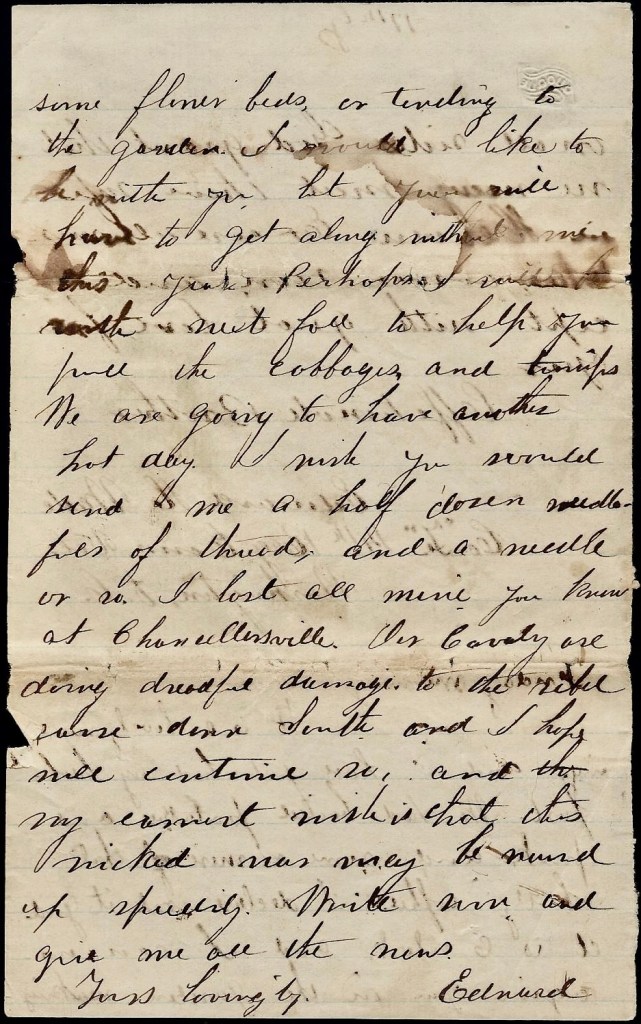 some flower beds, or tending to
the garden. I would like to
be with you, but you will
have to get along without me
this year. Perhaps I will be
with next fall to help you
pull the cabbages, and turnips
We are going to have another
hot day. I wish you would
send me a half dozen needle-
fuls of thread, and a needle
or so. I lost all mine you know
at Chancellorsville. Our Cavalry are
doing dreadful damage to the rebel
cause down South and I hope
will continue so, and th
my earnest wish is that this
wicked war may be wound
up speedily. Write soon and
give me all the news.
Yours lovingly. Edward